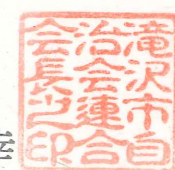 滝沢市自
治会連合
会長之印